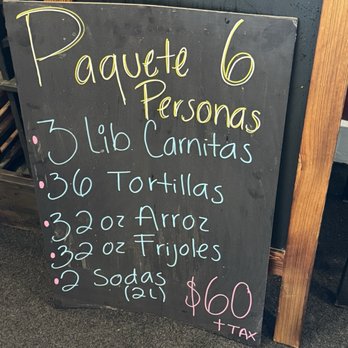 Paquete 6
Personas
• 3 Lib Carnitas
• 36 Tortillas
• 32 oz Arroz
• 32 oz Frijoles
• 2 Sodas
(2L)
$60
+ TAX